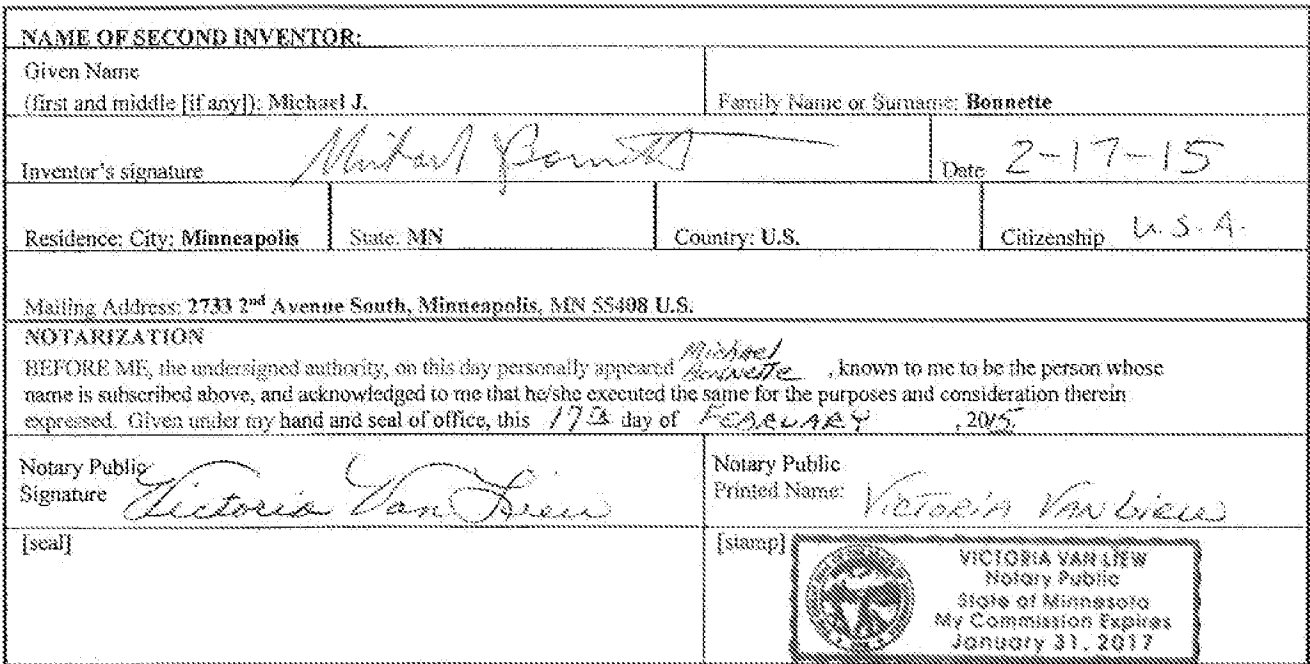 NAME OF SECOND INVENTOR:
Given Name
(first and middle [if any]): Michael J.
Family Name or Surname: Bonnette
Inventor's signature Michael Bonnett
Date 2-17-15
Residence: City: Minneapolis
State: MN
Country: U.S.
Citizenship U.S.A.
Mailing Address: 2733 2nd Avenue South, Minneapolis, MN 55408 U.S.
NOTARIZATION
Michael
BEFORE ME, the undersigned authority, on this day personally appeared Bonnette , known to me to be the person whose
name is subscribed above, and acknowledged to me that he/she executed the same for the purposes and consideration therein
expressed. Given under my hand and seal of office, this 17th day of FEBRUARY , 2015.
Notary Public
Signature Victoria Van Liew
Notary Public
Printed Name: VICTORIA VAN LIEW
[seal]
[stamp]
VICTORIA VAN LIEW
Notary Public
State of Minnesota
My Commission Expires
January 31, 2017